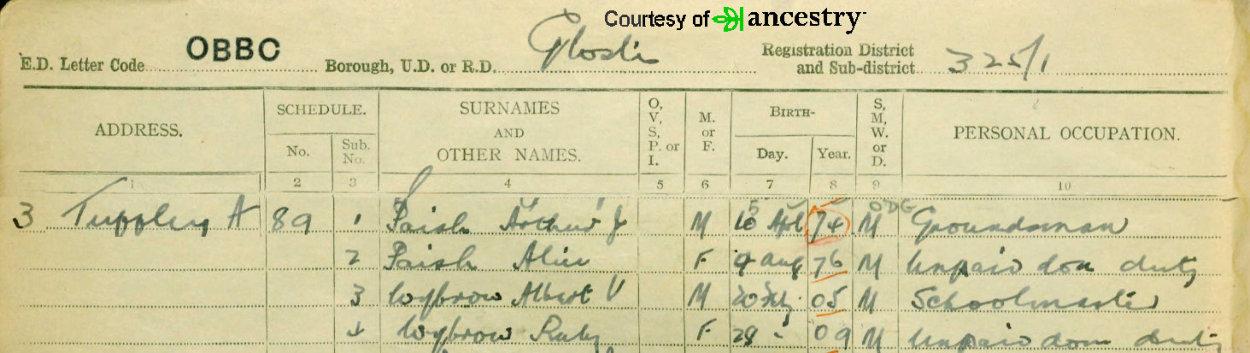 Courtesy of ancestry
E.D. Letter Code OBBC Borough, U.D. or R.D. Registration District and Sub-district 325/1
ADDRESS. SCHEDULE. No. Sub. No. SURNAMES AND OTHER NAMES. O, V, S, P. or I. M. or F. BIRTH- Day. Year. S, M, W. or D. PERSONAL OCCUPATION.
1 2 3 4 5 6 7 8 9 10
3 Tuffley A 89 1 Paish Arthur J M Apl 74 M Groundsman
2 Paish Alice F 9 Aug 76 M Unpaid dom duty
3 Wybrow Albert V M 20 05 M Schoolmaster
4 Wybrow Ruby F 28 " 09 M Unpaid dom duty